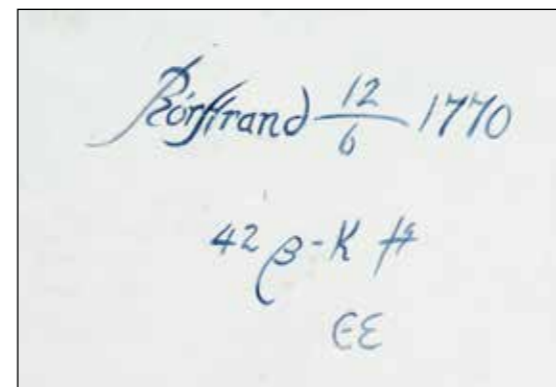 Rörstrand 12/6 1770
42 β-K #
EE